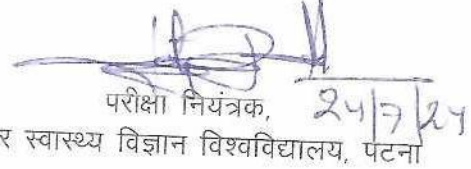 परीक्षा नियंत्रक, 24/7/24
र स्वास्थ्य विज्ञान विश्वविद्यालय, पटना